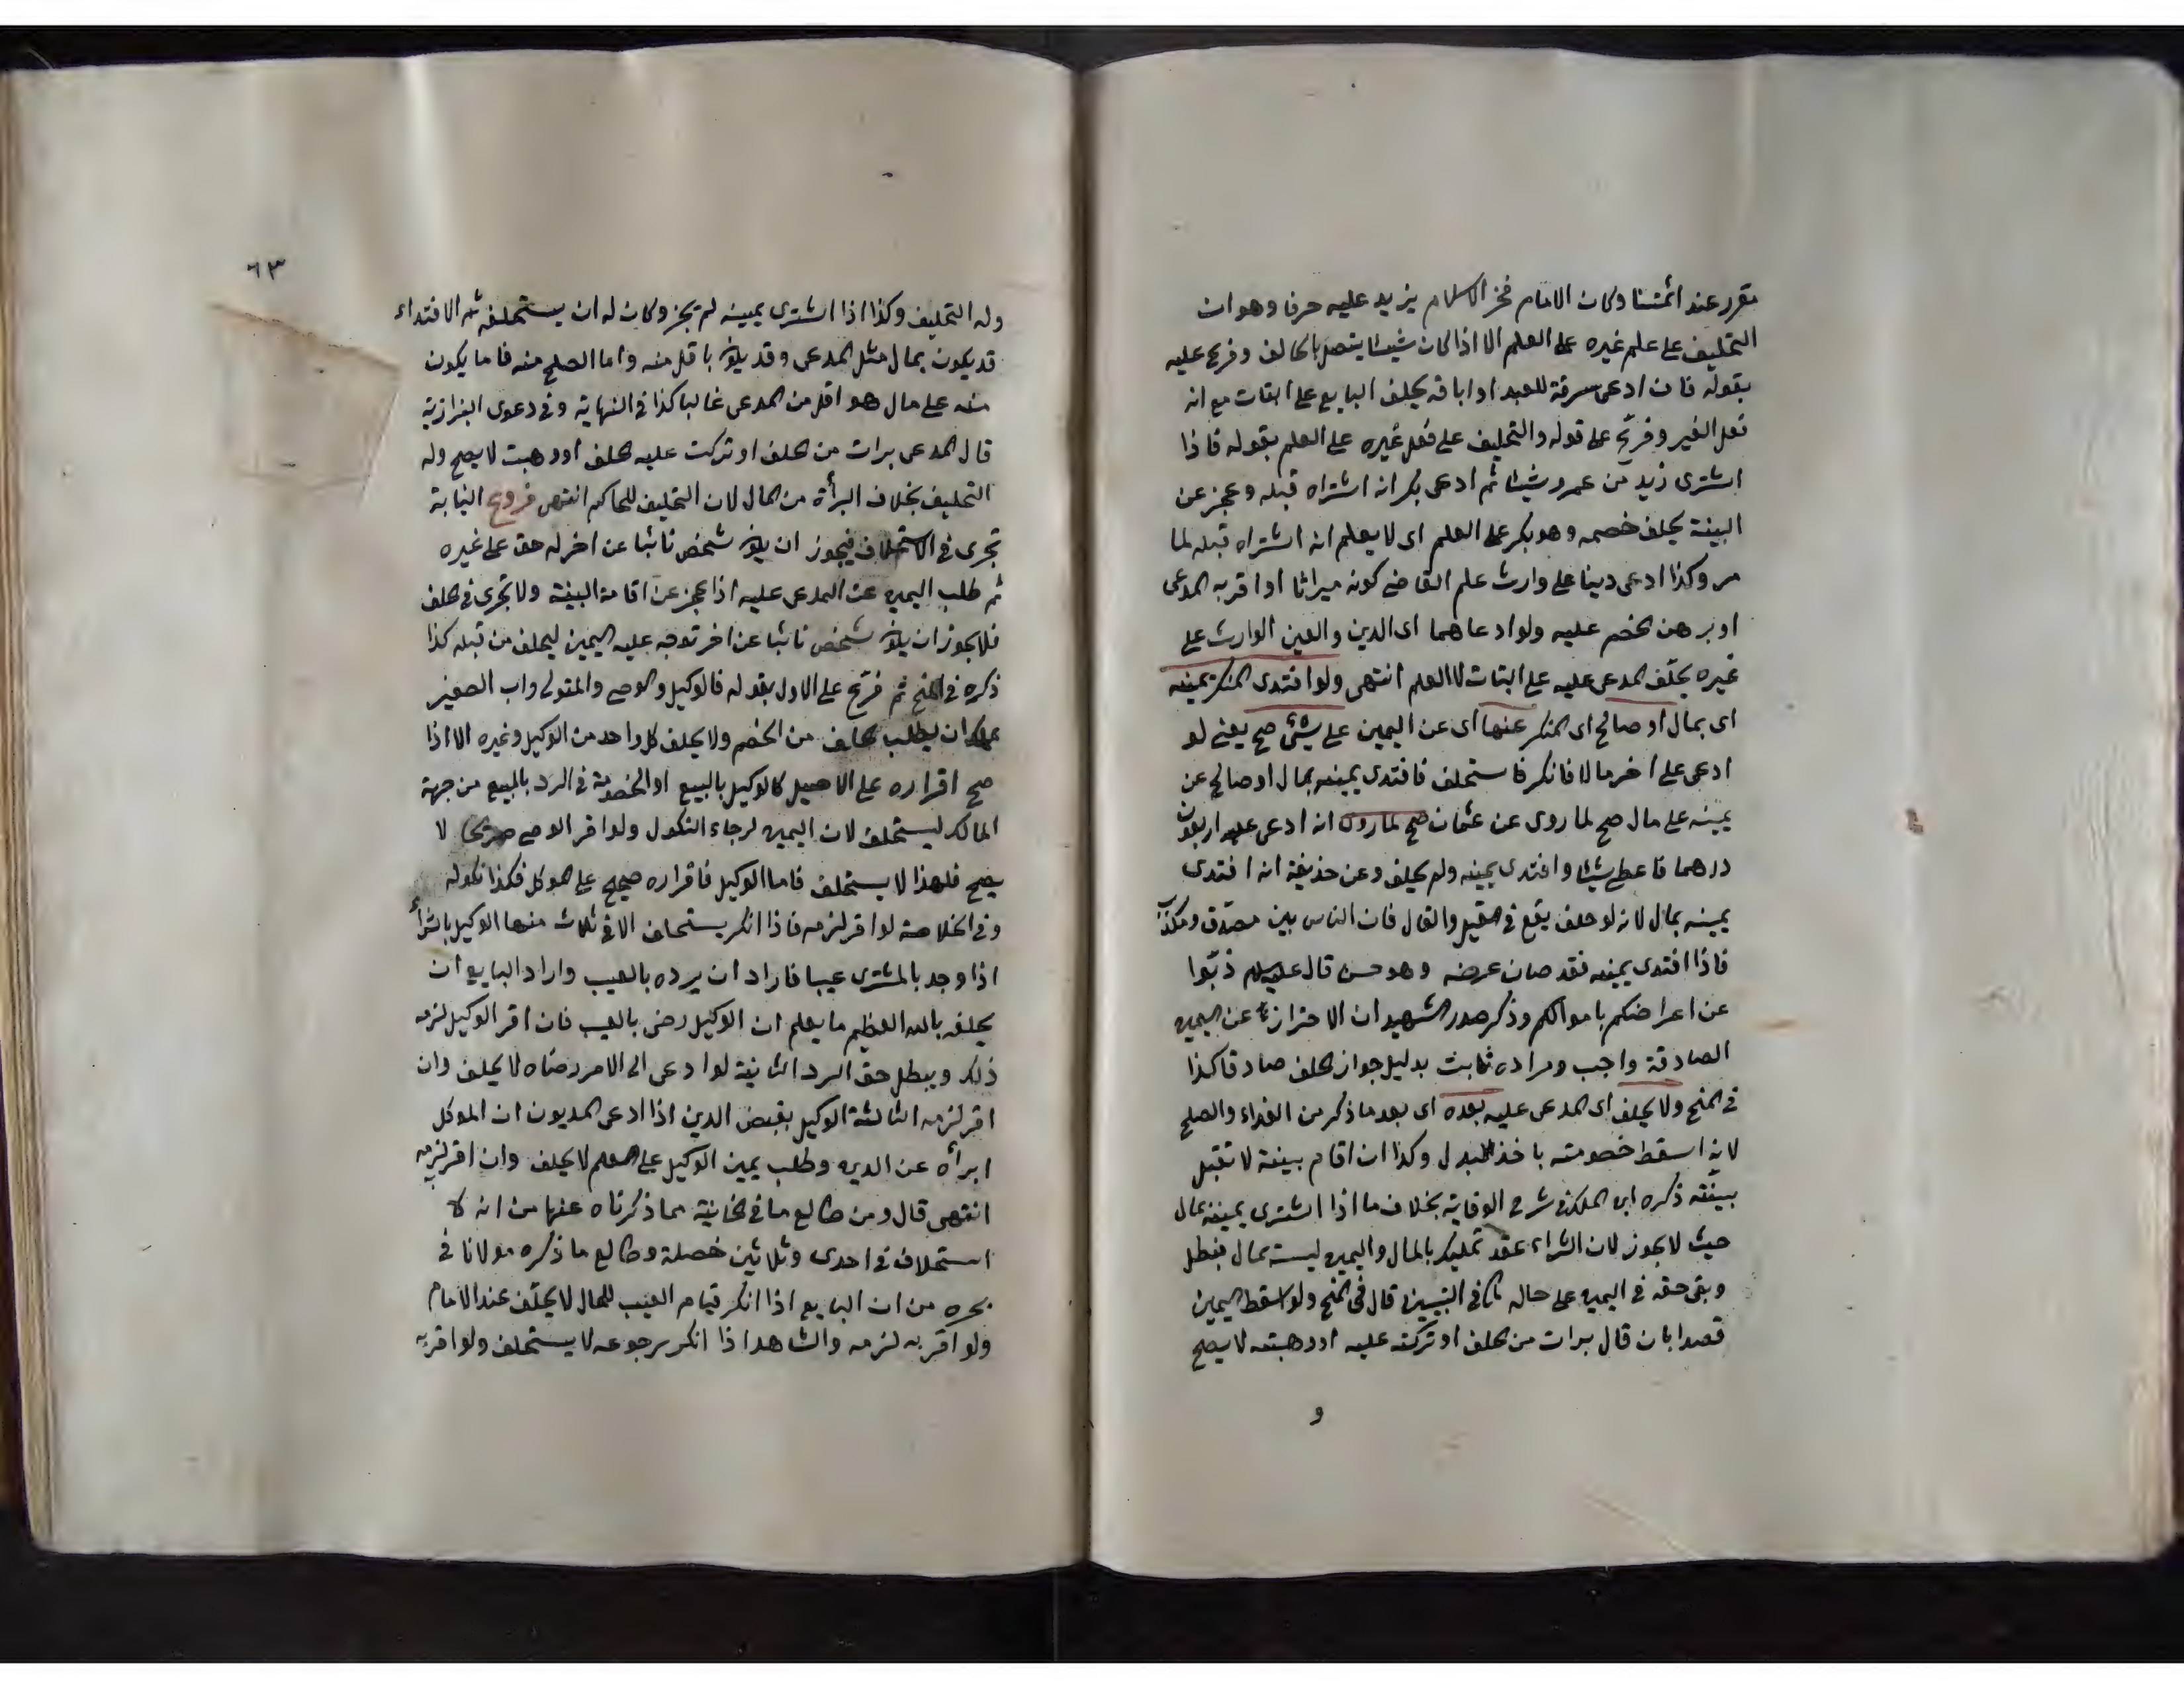 مقرر عند ائمتنا وكان الامام فخر الاسلام يزيد عليه حرفا وهو ان
التحليف على علم غيره على العلم الا اذا كان شيئا يتصل بالحالف وفرع عليه
بقوله فان ادعى سرقة للعبد او اباقه يحلف البايع على البتات مع انه
فعل الغير وفرع على قوله والتحليف على فعل غيره على العلم بقوله فاذا
اشترى زيد من عمرو شيئا ثم ادعى بكر انه اشتراه قبله وعجز عن
البينة يحلف خصمه وهو بكر على العلم اى لا يعلم انه اشتراه قبله لما
مر وكذا ادعى دينا على وارث علم القاضى كونه ميراثا او اقر به المدعى
او برهن الخصم عليه ولو ادعاهما اى الدين والعين الوارث على
غيره يحلف المدعى عليه على البتات لا العلم انتهى ولو افتدى المنكر يمينه
اى بمال او صالح اى المنكر عنها اى عن اليمين على شئ صح يعنى لو
ادعى على اخر مالا فانكر فاستحلف فافتدى يمينه بمال او صالح عن
يمينه على مال صح لما روى عن عثمان صح لما روى انه ادعى عليه اربعون
درهما فاعطى شيئا وافتدى يمينه ولم يحلف وعن حذيفة انه افتدى
يمينه بمال لانه لو حلف يقع في القيل والقال فان الناس بين مصدق ومكذب
فاذا افتدى يمينه فقد صان عرضه وهو حسن قال عليه السلام ذبوا
عن اعراضكم باموالكم وذكر صدر الشهيد ان الاحتراز عن اليمين
الصادقة واجب ومراده ثابت بدليل جواز الحلف صادقا كذا
في المنح ولا يحلف اى المدعى عليه بعده اى بعد ما ذكر من الفداء والصلح
لانه اسقط خصومته باخذ البدل وكذا ان اقام بينة لا تقبل
بينته ذكره ابن الملك في شرح الوقاية بخلاف ما اذا اشترى يمينه بمال
حيث لا يجوز لان الشراء عقد تمليك بالمال واليمين ليست بمال فبطل
وبقى حقه في اليمين على حاله كما في التبيين قال في المنح ولو اسقط اليمين
قصدا بان قال برات من الحلف او تركته عليه او وهبته لا يصح
و
٦٣
وله التحليف وكذا اذا اشترى يمينه لم يجز وكان له ان يستحلفه ثم الافتداء
قد يكون بمال مثل المدعى وقد يكون باقل منه واما الصلح منه فاما يكون
منه على مال هو اقل من المدعى غالبا كذا في النهاية وفي دعوى البزازية
قال المدعى برات من الحلف او تركت عليه الحلف او وهبت لا يصح وله
التحليف بخلاف البرأة من المال لان التحليف للحاكم انتهى فروع النيابة
تجرى في الاستحلاف فيجوز ان يكون شخص نائبا عن اخر له حق على غيره
ثم طلب اليمين عن المدعى عليه اذا عجز عن اقامة البينة ولا تجرى في الحلف
فلا يجوز ان يكون شخص نائبا عن اخر توجه عليه اليمين ليحلف من قبله كذا
ذكره في المنح ثم فرع على الاول بقوله فالوكيل والوصى والمتولى واب الصغير
يملك ان يطلب الحلف من الخصم ولا يحلف كل واحد من الوكيل وغيره الا اذا
صح اقراره على الاصيل كالوكيل بالبيع او الخصومة في الرد بالبيع من جهة
المالك ليستحلف لان اليمين لرجاء النكول ولو اقر الوصى صريحا لا
يصح فلهذا لا يستحلف فاما الوكيل فاقراره صحيح على الموكل فكذا نكوله
وفي الخلاصة لو اقر لزمه فاذا انكر يستحلف الا في ثلاث منها الوكيل بالشراء
اذا وجد بالمشترى عيبا فاراد ان يرده بالعيب واراد البايع ان
يحلفه بالله العظيم ما يعلم ان الوكيل رضى بالعيب فان اقر الوكيل لزمه
ذلك ويبطل حق الرد الثانية لو ادعى الى الامر رضاه لا يحلف وان
اقر لزمه الثالثة الوكيل بقبض الدين اذا ادعى المديون ان الموكل
ابرأه عن الدين وطلب يمين الوكيل على العلم لا يحلف وان اقر لزمه
انتهى قال ومن طالع ما في الخانية مما ذكرناه عنها من انه لا
استحلاف في احدى وثلاثين خصلة وطالع ما ذكره مولانا في
بحره من ان البايع اذا انكر قيام العيب للحال لا يحلف عند الامام
ولو اقر به لزمه والشاهد اذا انكر رجوعه لا يستحلف ولو اقر به